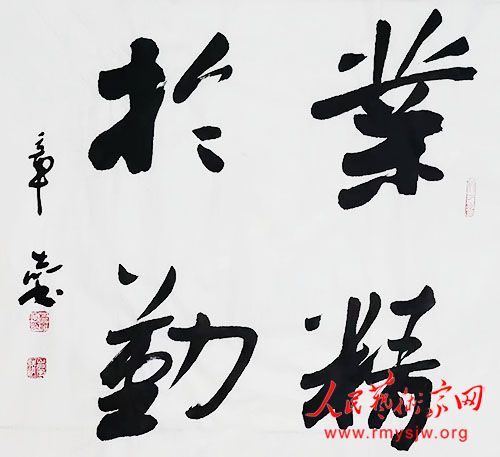 業精
於勤
章
人民藝術家网
www.rmysjw.org